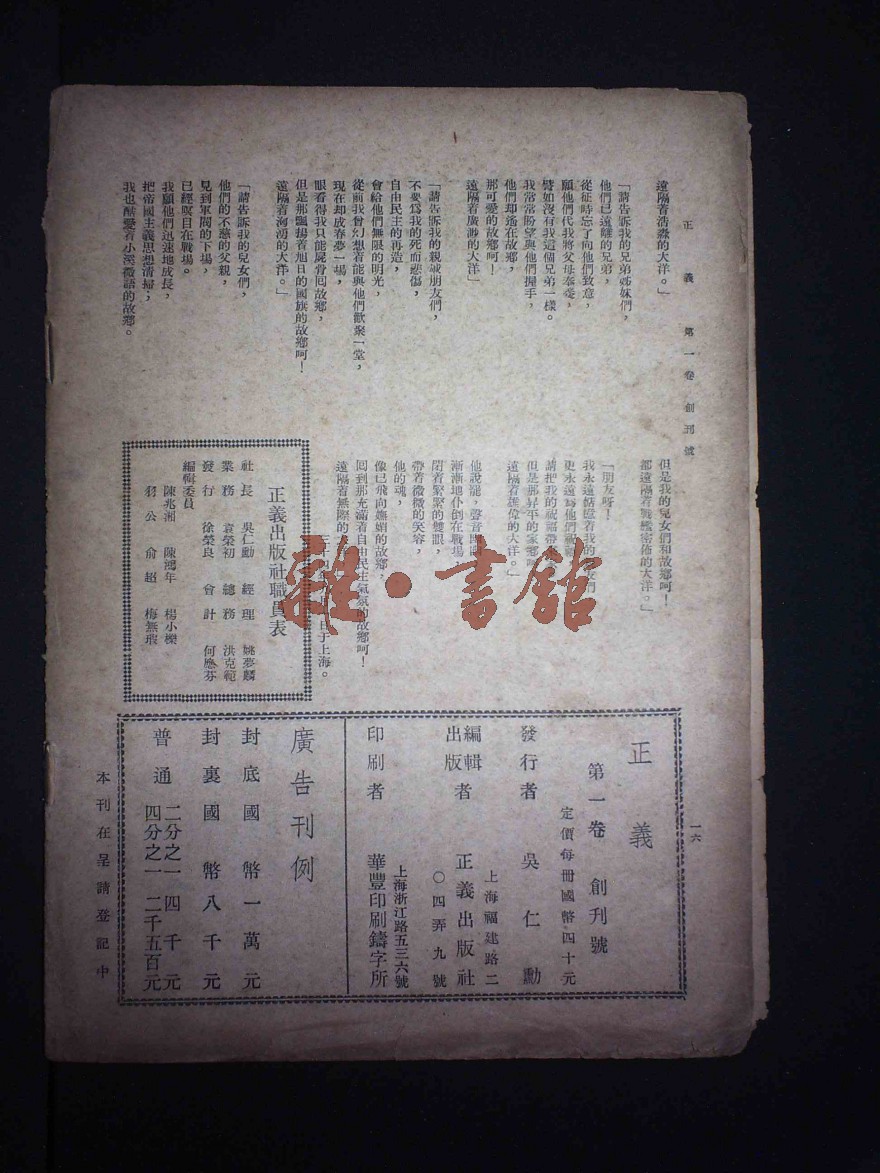 正義 第一卷 創刊號
遠隔着浩淼的大洋。」
「請告訴我的兄弟姊妹們，
他們已遠離的兄弟，
從征時忘了向他們致意，
願他們代我將父母奉養，
譬如沒有我這個兄弟一樣。
我常常盼望與他們握手，
他們却遙在故鄉，
那可愛的故鄉呵！
遠隔着廣漠的大洋」
「請告訴我的親誠朋友們，
不要為我的死而悲傷，
自由民主的再造，
會給他們無限的明光，
從前我曾幻想着能與他們歡聚一堂，
現在却成春夢一場，
眼看得我只能屍骨回故鄉，
但是那飄揚着旭日的國旗的故鄉呵！
遠隔着洶湧的大洋。」
「請告訴我的兒女們，
他們的不慈的父親，
兒到軍閥的下場，
已經瞑目在戰場。
我願他們迅速地成長，
把帝國主義思想清掃；
我也酷愛着小溪微語的故鄉。
但是我的兒女們和故鄉呵！
都遠隔着戰艦密佈的大洋。」
「朋友呀！
我永遠惦念着我的兒女們
更永遠為他們祝福
請把我的祝福帶
但是那昇平的家鄉呵
遠隔着雄偉的大洋。」
他說罷，聲音
漸漸地仆倒在戰場
閉着緊緊的雙眼，
帶著微微的笑容，
他的魂，
像已飛向嫵媚的故鄉，
回到那充滿着自由民主氣氛的故鄉呵！
遠隔着無際的
三十四年 日于上海。
正義出版社職員表
社長 吳仁勳 經理 姚夢麟
業務 袁榮初 總務 洪克範
發行 徐榮良 會計 何應芬
編輯委員
陳兆湘 陳鴻年 楊小櫟
羽公 俞超 梅無瑕
雜·書館
一六
正義
第一卷 創刊號
定價每冊國幣四十元
發行者 吳仁勳
上海福建路二
〇四弄九號
編輯出版者 正義出版社
上海浙江路五三六號
印刷者 華豐印刷鑄字所
廣告刊例
封底國幣一萬元
封裏國幣八千元
普通 二分之一 四千元
四分之一 二千五百元
本刊在呈請登記中